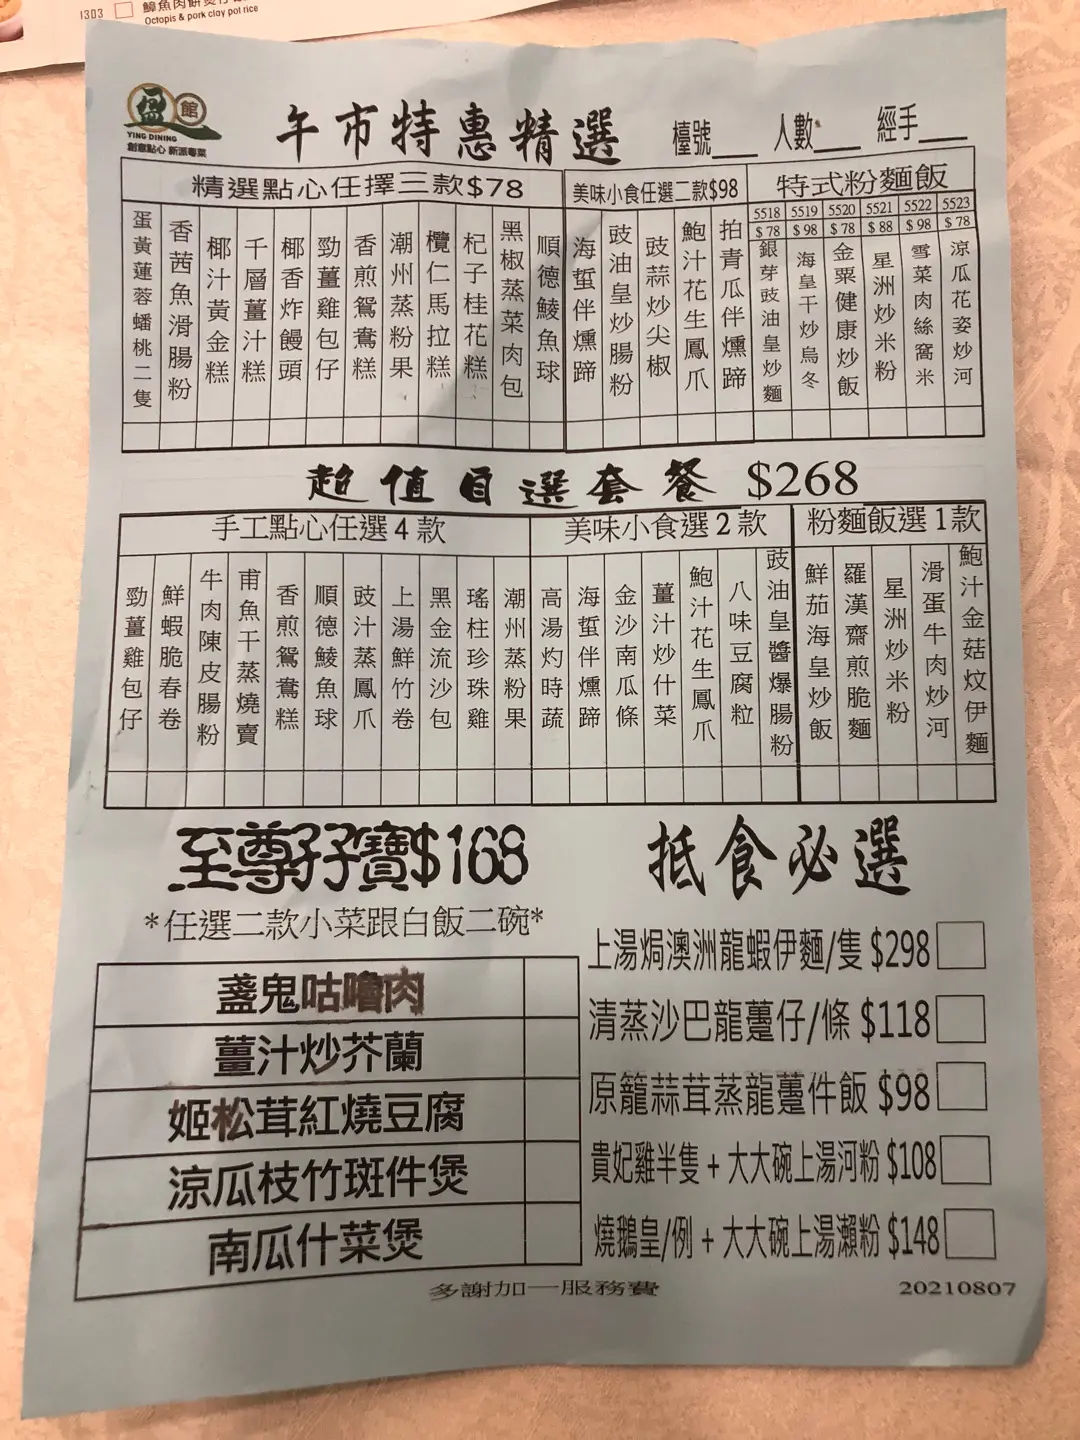 1303 鱆魚肉餅煲仔
Octopis & pork clay pot rice
盈館
YING DINING
創意點心 新派粵菜
午市特惠精選
檯號___ 人數___ 經手___
精選點心任擇三款$78
蛋黃蓮蓉蟠桃二隻
香茜魚滑腸粉
椰汁黃金糕
千層薑汁糕
椰香炸饅頭
勁薑雞包仔
香煎鴛鴦糕
潮州蒸粉果
欖仁馬拉糕
杞子桂花糕
黑椒蒸菜肉包
順德鯪魚球
美味小食任選二款$98
海蜇伴燻蹄
豉油皇炒腸粉
豉蒜炒尖椒
鮑汁花生鳳爪
拍青瓜伴燻蹄
特式粉麵飯
5518 $78 銀芽豉油皇炒麵
5519 $98 海皇干炒烏冬
5520 $78 金粟健康炒飯
5521 $88 星洲炒米粉
5522 $98 雪菜肉絲窩米
5523 $78 涼瓜花姿炒河
超值自選套餐 $268
手工點心任選4款
勁薑雞包仔
鮮蝦脆春卷
牛肉陳皮腸粉
甫魚干蒸燒賣
香煎鴛鴦糕
順德鯪魚球
豉汁蒸鳳爪
上湯鮮竹卷
黑金流沙包
瑤柱珍珠雞
潮州蒸粉果
美味小食選2款
高湯灼時蔬
海蜇伴燻蹄
金沙南瓜條
薑汁炒什菜
鮑汁花生鳳爪
八味豆腐粒
豉油皇醬爆腸粉
粉麵飯選1款
鮮茄海皇炒飯
羅漢齋煎脆麵
星洲炒米粉
滑蛋牛肉炒河
鮑汁金菇炆伊麵
至尊孖寶$168
*任選二款小菜跟白飯二碗*
盞鬼咕嚕肉
薑汁炒芥蘭
姬松茸紅燒豆腐
涼瓜枝竹斑件煲
南瓜什菜煲
抵食必選
上湯焗澳洲龍蝦伊麵/隻 $298
清蒸沙巴龍躉仔/條 $118
原籠蒜茸蒸龍躉件飯 $98
貴妃雞半隻 + 大大碗上湯河粉 $108
燒鵝皇/例 + 大大碗上湯瀨粉 $148
多謝加一服務費
20210807